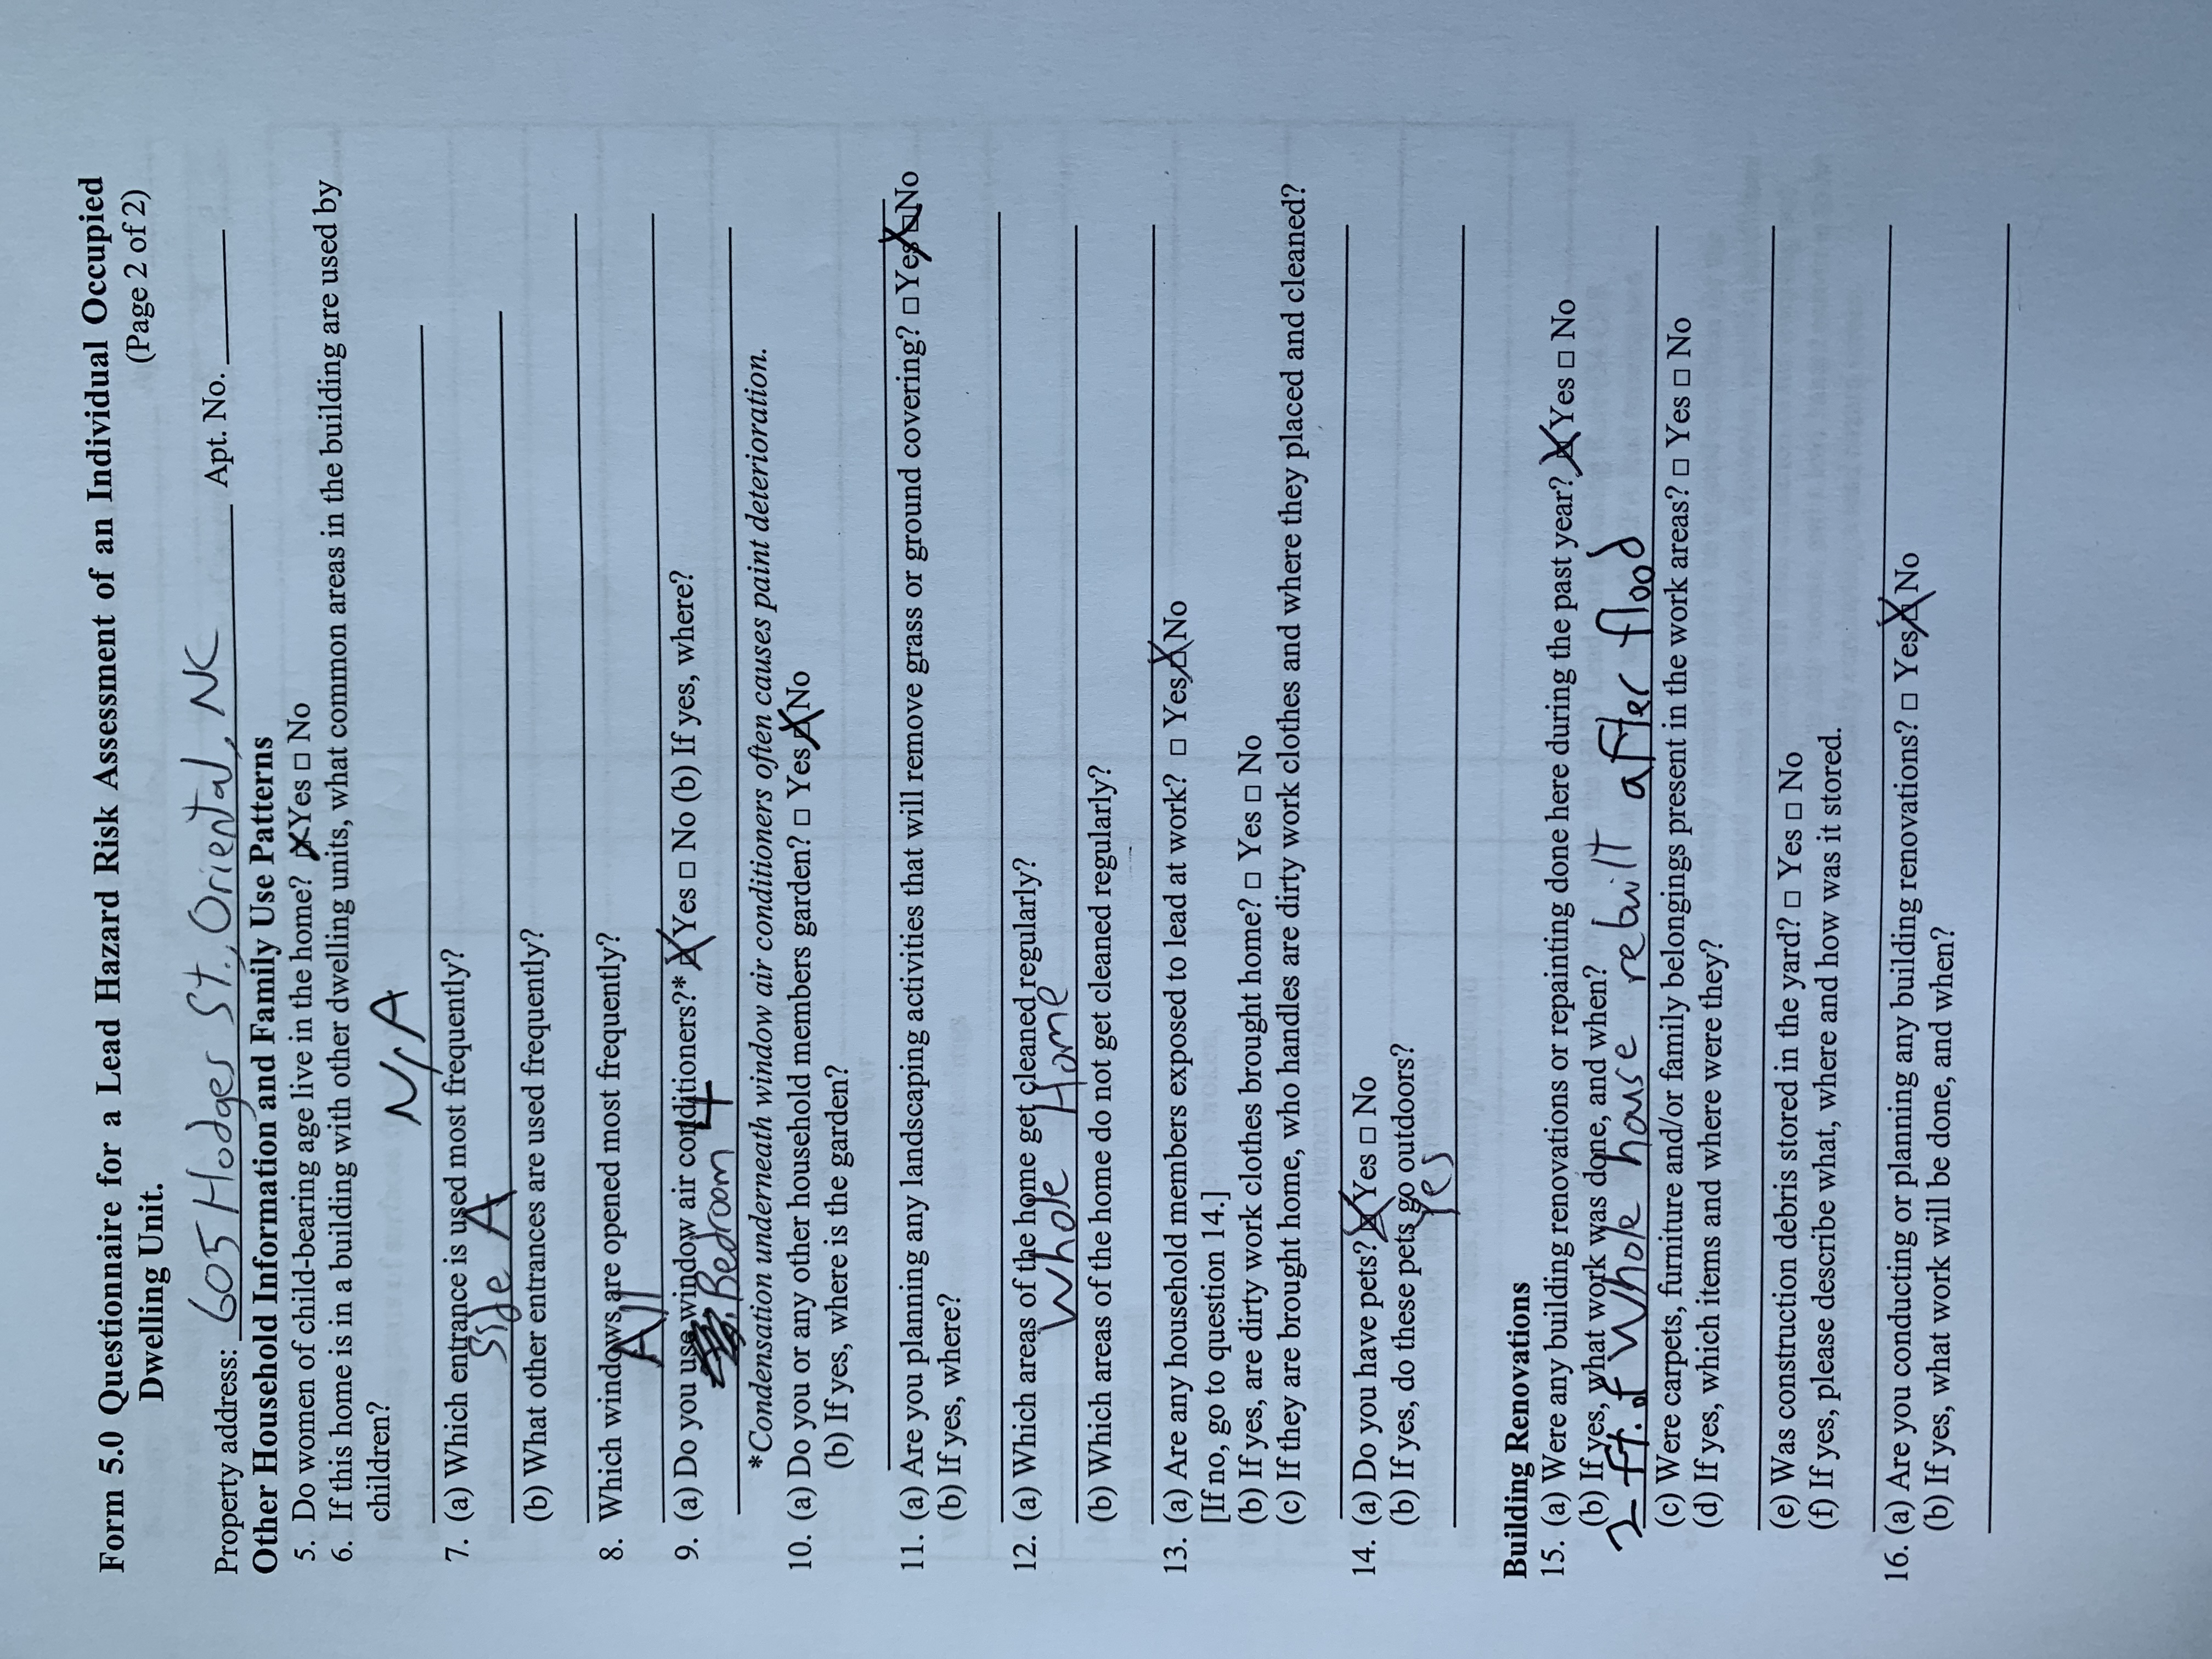 Form 5.0 Questionnaire for a Lead Hazard Risk Assessment of an Individual Occupied
Dwelling Unit. (Page 2 of 2)
Property address: 605 Hodges St., Oriental, NC Apt. No. ______
Other Household Information and Family Use Patterns
5. Do women of child-bearing age live in the home? ☒ Yes □ No
6. If this home is in a building with other dwelling units, what common areas in the building are used by
children?
N/A
7. (a) Which entrance is used most frequently?
Side A
(b) What other entrances are used frequently?
8. Which windows are opened most frequently?
All
9. (a) Do you use window air conditioners?* ☒ Yes □ No (b) If yes, where?
Bedroom 4
*Condensation underneath window air conditioners often causes paint deterioration.
10. (a) Do you or any other household members garden? □ Yes ☒ No
(b) If yes, where is the garden?
11. (a) Are you planning any landscaping activities that will remove grass or ground covering? □ Yes ☒ No
(b) If yes, where?
12. (a) Which areas of the home get cleaned regularly?
Whole Home
(b) Which areas of the home do not get cleaned regularly?
13. (a) Are any household members exposed to lead at work? □ Yes ☒ No
[If no, go to question 14.]
(b) If yes, are dirty work clothes brought home? □ Yes □ No
(c) If they are brought home, who handles are dirty work clothes and where they placed and cleaned?
14. (a) Do you have pets? ☒ Yes □ No
(b) If yes, do these pets go outdoors?
Yes
Building Renovations
15. (a) Were any building renovations or repainting done here during the past year? ☒ Yes □ No
(b) If yes, what work was done, and when?
2 ft. of Whole house rebuilt after flood
(c) Were carpets, furniture and/or family belongings present in the work areas? □ Yes □ No
(d) If yes, which items and where were they?
(e) Was construction debris stored in the yard? □ Yes □ No
(f) If yes, please describe what, where and how was it stored.
16. (a) Are you conducting or planning any building renovations? □ Yes ☒ No
(b) If yes, what work will be done, and when?